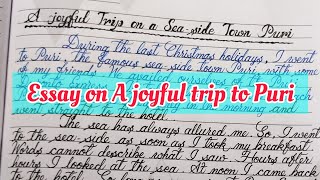 A joyful Trip on a Sea-side Town Puri
During the last Christmas holidays, I went
to Puri, the famous sea-side town Puri with some
of my friends. We availed ourselves of the
Essay on A joyful trip to Puri
in the morning and
went straight to the hotel.
The sea has always allured me. So, I went
to the sea-side as soon as I took my breakfast.
Words cannot describe what I saw. Hours after
hours I looked at the sea. At noon I came back
to the hotel.